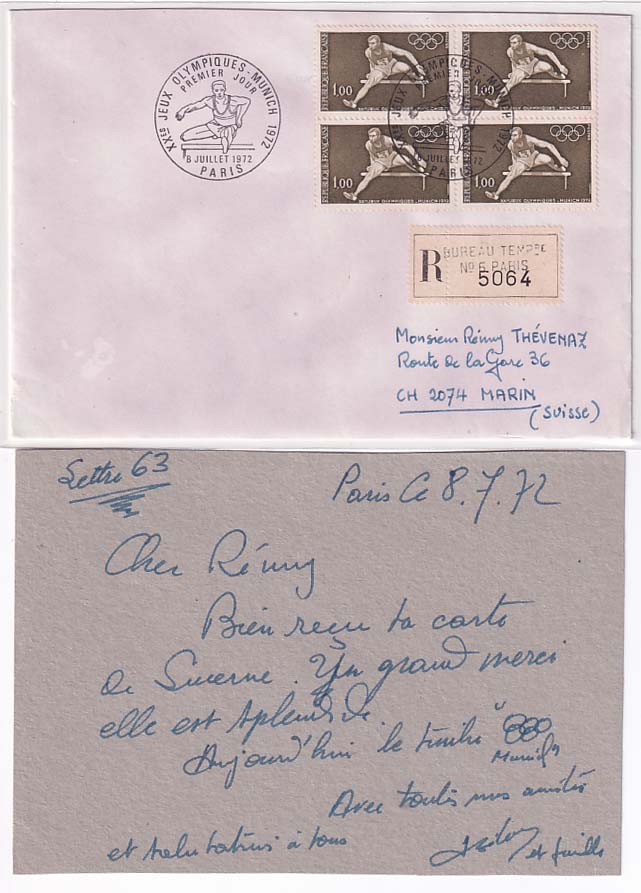 XXES JEUX OLYMPIQUES - MUNICH 1972
PREMIER JOUR
8 JUILLET 1972
PARIS
REPUBLIQUE FRANÇAISE
1.00
REPUBLIQUE FRANÇAISE
1.00
REPUBLIQUE FRANÇAISE
1.00
XXES JEUX OLYMPIQUES - MUNICH 1972
REPUBLIQUE FRANÇAISE
1.00
XXES JEUX OLYMPIQUES - MUNICH 1972
XXES JEUX OLYMPIQUES - MUNICH 1972
PREMIER JOUR
8 JUILLET 1972
PARIS
R
BUREAU TEMPRE
No 6 PARIS
5064
Monsieur Rémy THÉVENAZ
Route de la Gare 36
CH 2074 MARIN
(Suisse)
Lettre 63
Paris le 8.7.72
Cher Rémy
Bien reçu ta carte
de Lucerne. Un grand merci
elle est splendide.
Aujourd'hui le timbre "
Munich"
Avec toutes mes amitiés
et salutations à tous
et famille